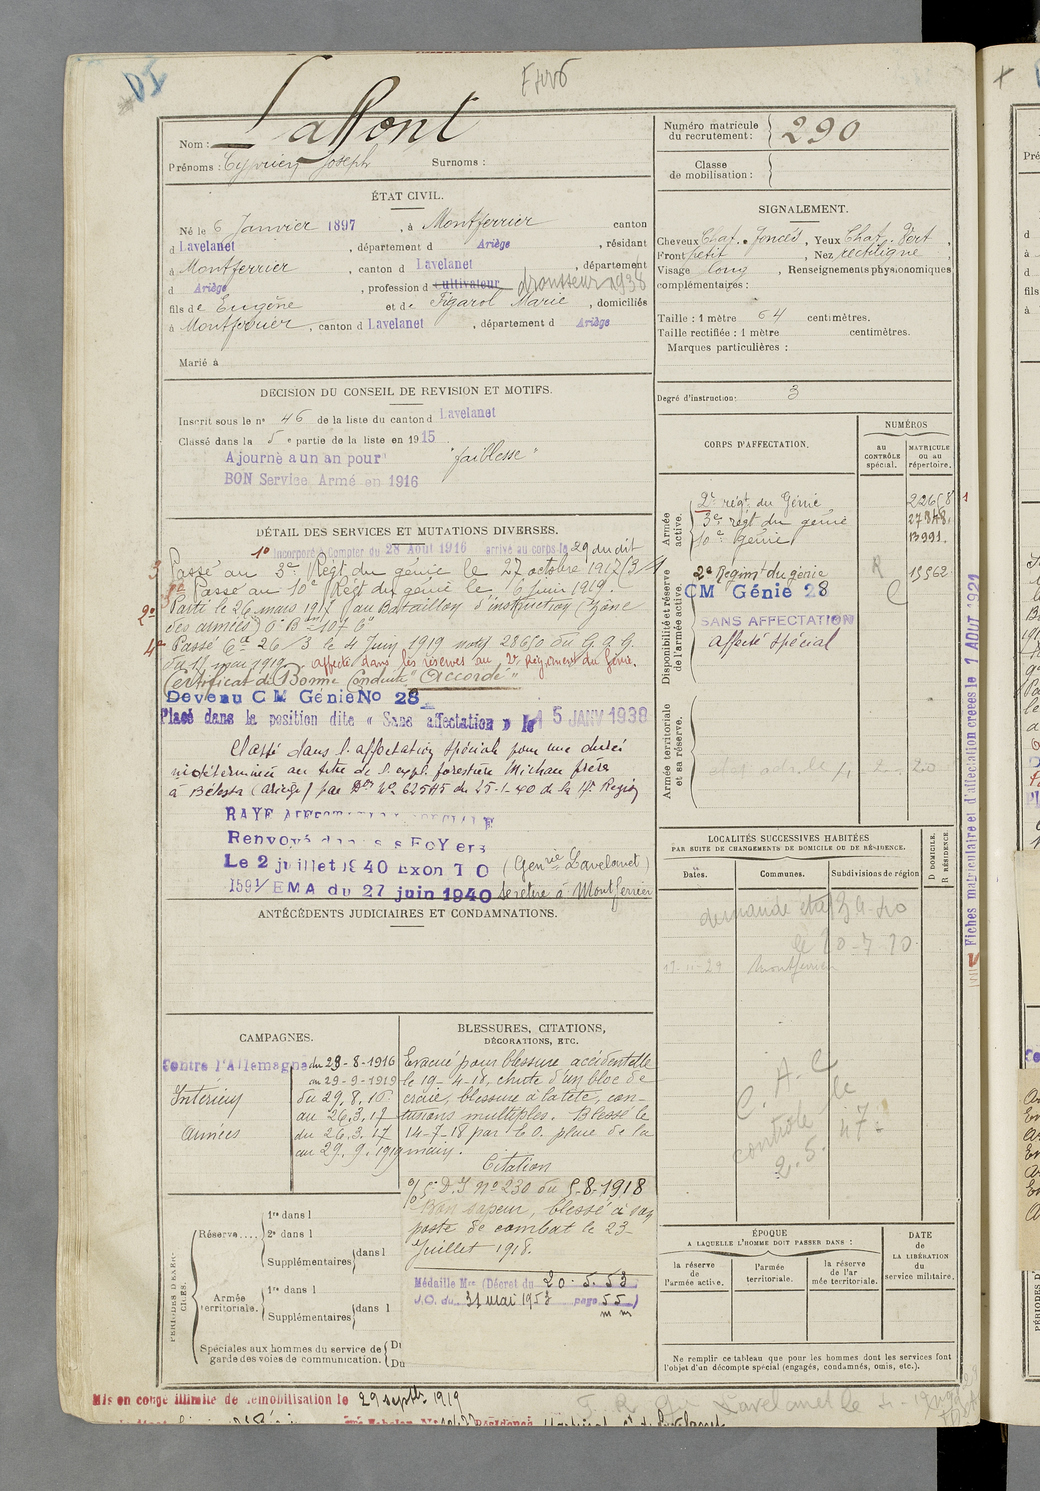 DI
Nom : Laffont
Prénoms : Cyprien Joseph Surnoms :
Numéro matricule du recrutement : 290
Classe de mobilisation :
ÉTAT CIVIL.
Né le 6 Janvier 1897, à Montferrier canton
d Lavelanet, département d Ariège, résidant
à Montferrier, canton d Lavelanet, département
d Ariège, profession d cultivateur drousseur 1938
fils de Eugène et de Figarol Marie, domiciliés
à Montferrier, canton d Lavelanet, département d Ariège
Marié à
SIGNALEMENT.
Cheveux Chat. foncés, Yeux Chat. Vert,
Front petit, Nez rectiligne,
Visage long, Renseignements physionomiques
complémentaires :
Taille : 1 mètre 64 centimètres.
Taille rectifiée : 1 mètre centimètres.
Marques particulières :
Degré d'instruction : 3
DECISION DU CONSEIL DE REVISION ET MOTIFS.
Inscrit sous le nº 46 de la liste du canton d Lavelanet
Classé dans la 5e partie de la liste en 1915
Ajourné a un an pour "faiblesse"
BON Service Armé en 1916
CORPS D'AFFECTATION.
NUMÉROS
au CONTRÔLE spécial.
MATRICULE ou au répertoire.
Armée active.
2e régt du Génie
3e régt du génie
10e Génie 13991.
Disponibilité et réserve de l'armée active.
2e Regimt du génie R 15562
CM Génie 28
SANS AFFECTATION
affecté spécial
Armée territoriale et sa réserve.
DÉTAIL DES SERVICES ET MUTATIONS DIVERSES.
1º Incorporé à Compter du 28 Aout 1916 arrivé au corps le 29 du dit
Passé au 3e Régt du génie le 27 octobre 1917
Passé au 10e Régt du génie le 16 Juin 1919.
2º Parti le 26 mars 1917 au Bataillon d'instruction (Zône
des armées)
4º Passé Cie 26/3 le 4 Juin 1919
du 17 mai 1919. affecté dans les réserves au 2e Régiment du Génie.
Certificat de Bonne Conduite "Accordé"
Devenu CM Génie No 28
Placé dans la position dite « Sans affectation » le 15 JANV 1938
Classé dans l'affectation spéciale pour une durée
indéterminée au titre de l'expl. forestière Michau frères
à Bélesta (Ariège) par Don Nº 625 du 25-1-40 de la 17e Région
RAYÉ AFFECTATION SPECIALE
Renvoyé dans ses FoYers
Le 2 juillet 1940 (Genrie Lavelanet)
EMA du 27 juin 1940 se retire à Montferrier
ANTÉCÉDENTS JUDICIAIRES ET CONDAMNATIONS.
LOCALITÉS SUCCESSIVES HABITÉES
PAR SUITE DE CHANGEMENTS DE DOMICILE OU DE RÉSIDENCE.
Dates. Communes. Subdivisions de région
D DOMICILE.
R RÉSIDENCE.
Montferrier
C. A. C
contrôle le
2. 5. 47.
Fiches matriculaire et d'affectation créées le 1 AOUT 1921
CAMPAGNES.
Contre l'Allemagne du 29-8-1916
au 29-9-1919
Intérieur du 29.8.16
au 26.3.17
Armées du 26.3.17
au 29.9.1919
BLESSURES, CITATIONS,
DÉCORATIONS, ETC.
Evacué pour blessure accidentelle
le 19-4-18, chute d'un bloc de
craie, blessure à la tête, con-
tusions multiples. Blessé le
14-7-18 par E.O. plaie de la
main.
Citation
nº 230 du 5-8-1918
Bon sapeur, blessé à son
poste de combat le 23
Juillet 1918.
Médaille Mre (Décret du 20. 5. 53
J.O. du 31 mai 1953 page 55)
PÉRIODES D'EXERCICES.
Réserve.... 1re dans l
2e dans l
Supplémentaires dans l
Armée territoriale. 1re dans l
Supplémentaires dans l
Spéciales aux hommes du service de garde des voies de communication. Du
Du
ÉPOQUE
A LAQUELLE L'HOMME DOIT PASSER DANS :
la réserve de l'armée active.
l'armée territoriale.
la réserve de l'armée territoriale.
DATE DE LA LIBÉRATION du service militaire.
Ne remplir ce tableau que pour les hommes dont les services font
l'objet d'un décompte spécial (engagés, condamnés, omis, etc.).
Mis en congé illimité de démobilisation le 29 septbre 1919